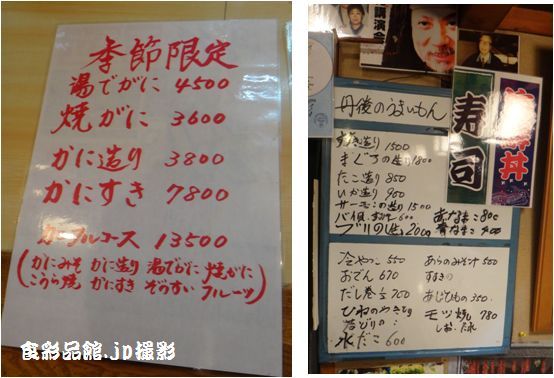 季節限定
湯でがに 4500
焼がに 3600
かに造り 3800
かにすき 7800
コース 13500
(かにみそ かに造り 湯でがに 焼がに
こうら焼 かにすき ぞうすい フルーツ)
食彩品館.jp撮影
講演会
丹後のうまいもん
造り 1500
まぐろの造り 1800
たこ造り 850
いか造り 900
サーモンの造り 1500
600
赤なまこ 800
青なまこ
冷やっこ 550
おでん 670
だし巻 700
ひねのやきとり
若どりの
水だこ 600
あらのみそ汁 550
すましの
あじひもの 350
モツ焼 780
しお・たれ
寿司
海鮮丼